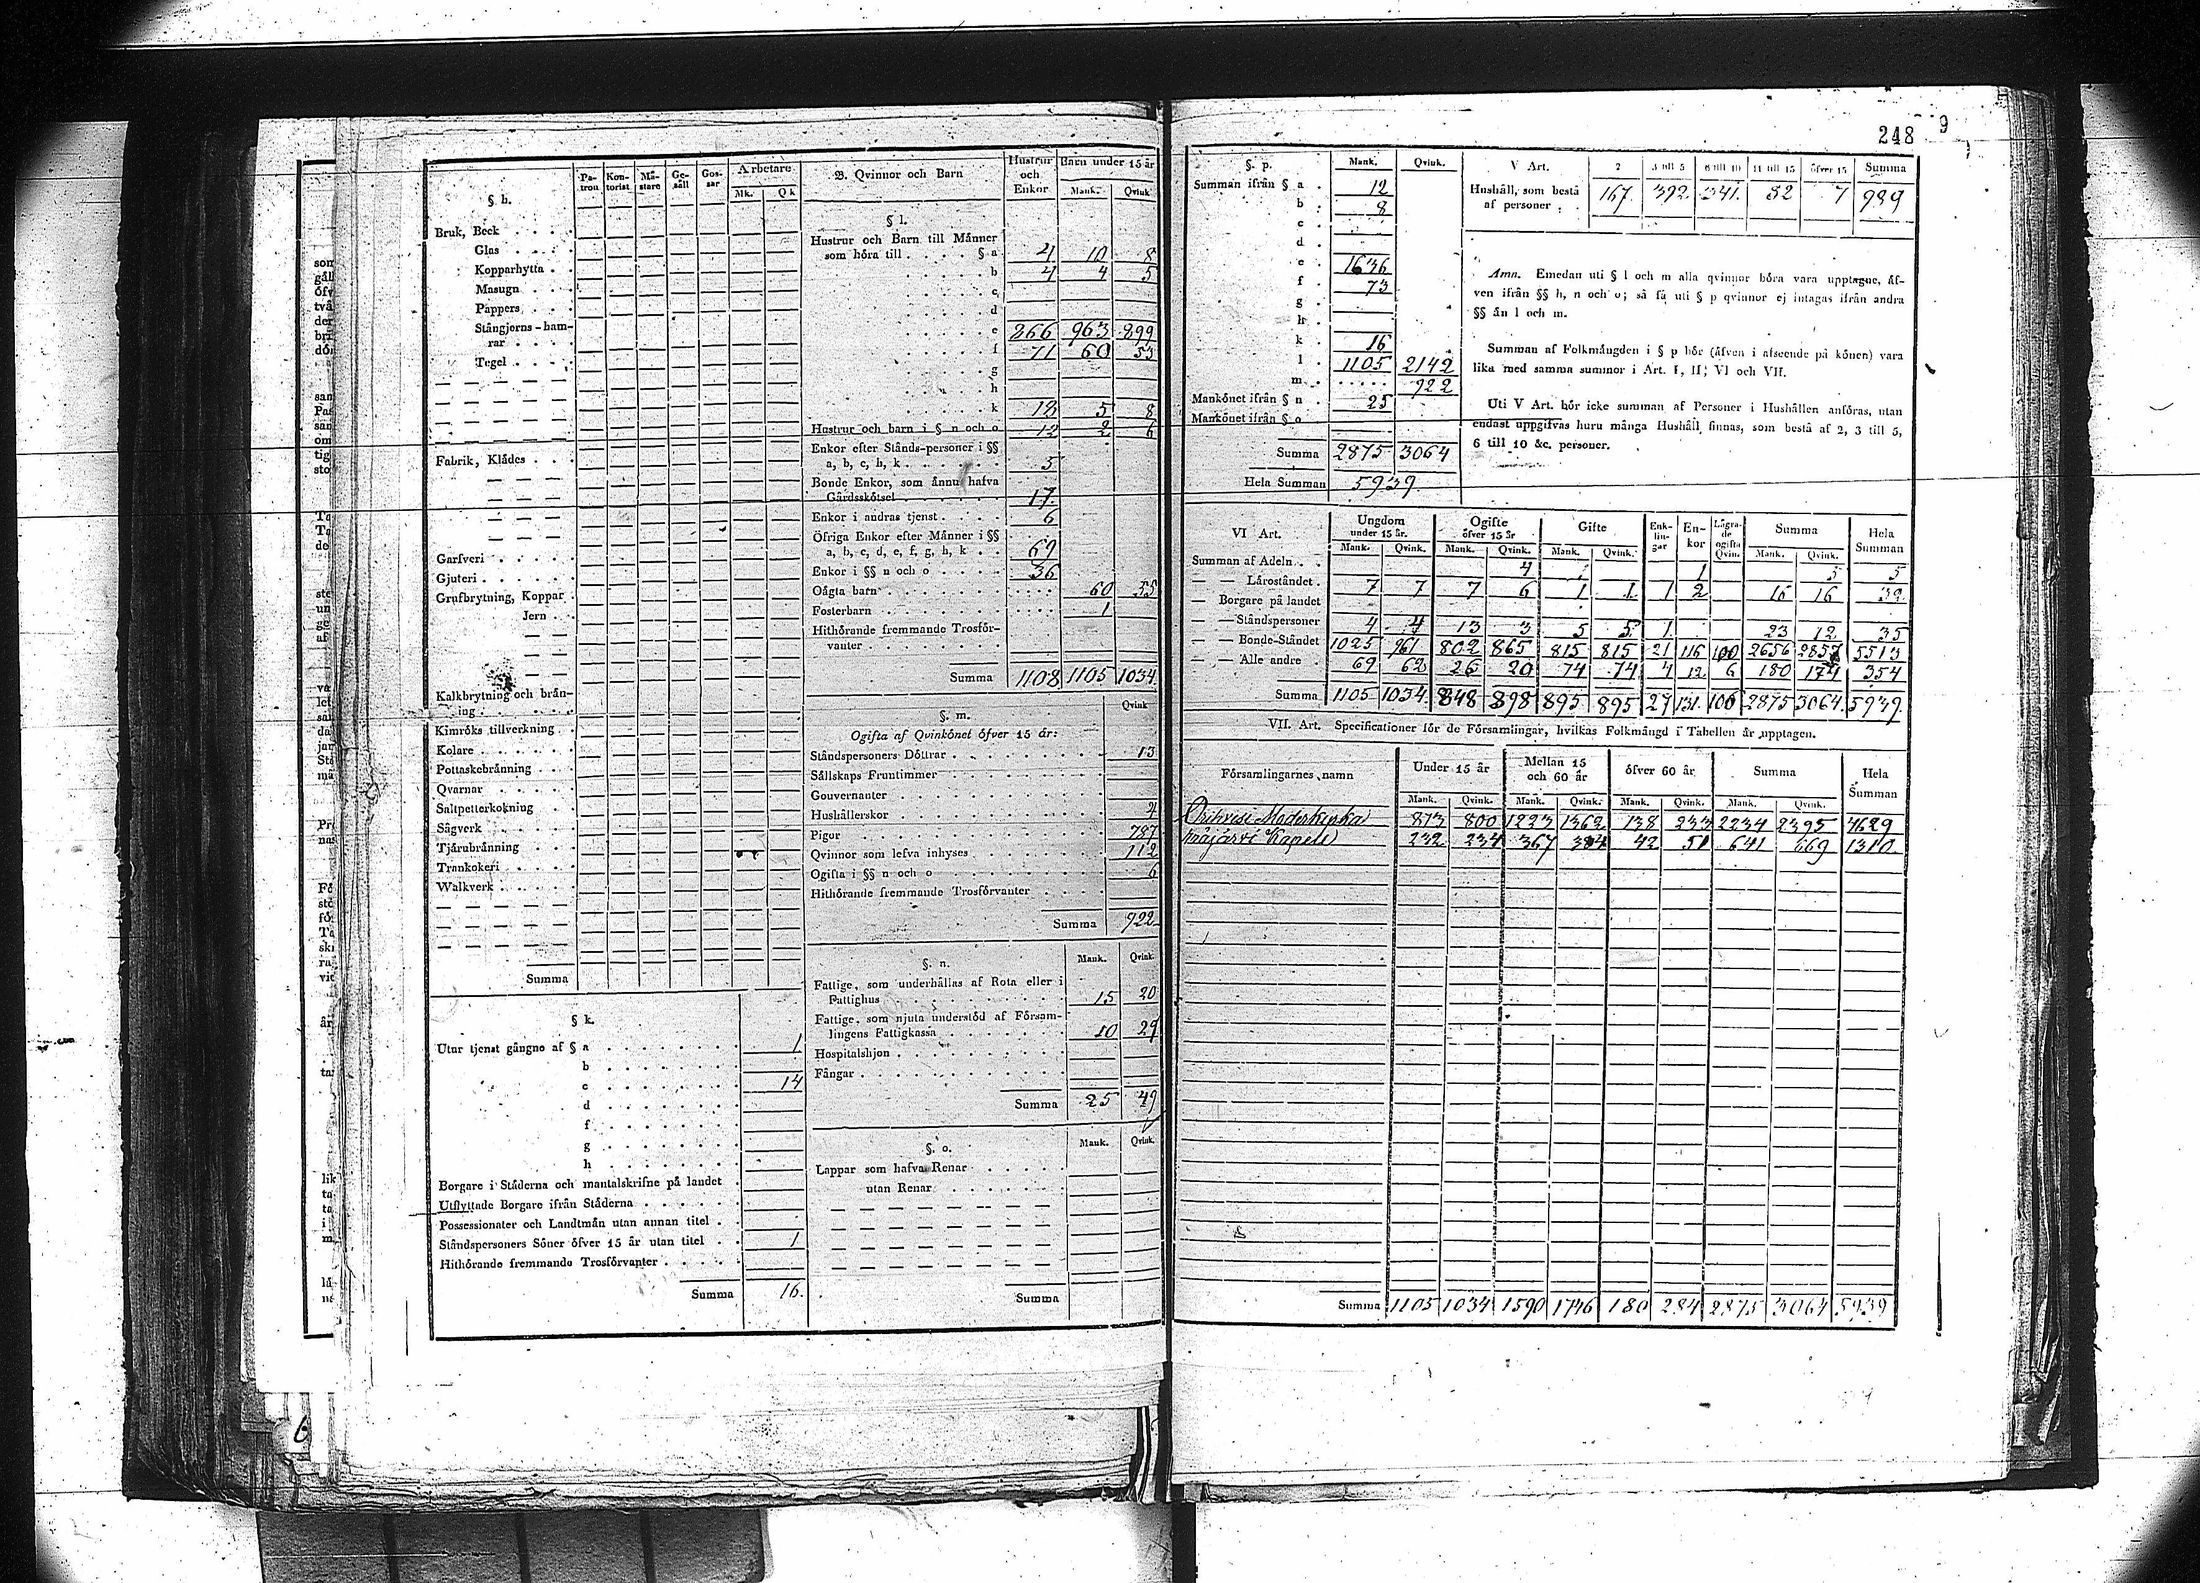 248 9
§ h.
Pa-
tron
Kon-
torist
Mä-
stare
Ge-
säll
Gos-
sar
Arbetare
Mk. Qk
Bruk, Beck
Glas
Kopparhytta
Masugn
Pappers
Stångjerns-ham-
rar
Tegel
Fabrik, Klädes
Garfveri
Gjuteri
Grufbrytning, Koppar
Jern
Kalkbrytning och brän-
ing
Kimröks tillverkning
Kolare
Pottaskebränning
Qvarnar
Saltpetterkokning
Sågverk
Tjärubränning
Trankokeri
Walkverk
Summa
§ k.
Utur tjenst gångne af § a 1
b
c 14
d
f
g
h
Borgare i Städerna och mantalskrifne på landet
Utflyttade Borgare ifrån Städerna
Possessionater och Landtmän utan annan titel
Ståndspersoners Söner öfver 15 år utan titel 1
Hithörande fremmande Trosförvanter
Summa 16.
B. Qvinnor och Barn
Hustrur
och
Enkor
Barn under 15 år
Mank. Qvink
§ l.
Hustrur och Barn till Männer
som höra till § a 4 10 8
b 4 4 5
c
d
e 866 963 899
f 71 60 53
g
h
k 5 8
Hustrur och barn i § n och o 12 2 6
Enkor efter Stånds-personer i §§
a, b, c, h, k 5
Bonde Enkor, som ännu hafva
Gårdsskötsel 17.
Enkor i andras tjenst 6
Öfriga Enkor efter Männer i §§
a, b, c, d, e, f, g, h, k 69
Enkor i §§ n och o 36
Oägta barn 60 55
Fosterbarn 1
Hithörande fremmande Trosför-
vanter
Summa 1108 1105 1034
§. m.
Qvink
Ogifta af Qvinkönet öfver 15 år:
Ståndspersoners Döttrar 13
Sällskaps Fruntimmer
Gouvernanter
Hushållerskor 4
Pigor 787
Qvinnor som lefva inhyses 112
Ogifta i §§ n och o 6
Hithörande fremmande Trosförvanter
Summa 922
§. n.
Mank. Qvink.
Fattige, som underhållas af Rota eller i
Fattighus 15 20
Fattige, som njuta understöd af Församl-
lingens Fattigkassa 10 29
Hospitalshjon
Fångar
Summa 25 49
§. o.
Mank. Qvink.
Lappar som hafva Renar
utan Renar
Summa
§. p. Mank. Qvink.
Summan ifrån § a 12
b 8
c
d
e 1636
f 73
g
h
k 16
l 1105 2142
m 922
Mankönet ifrån § n 25
Mankönet ifrån § o
Summa 2875 3064
Hela Summan 5939
V Art. 2 3 till 5 6 till 10 11 till 15 öfver 15 Summa
Hushåll, som bestå
af personer 167. 392. 341. 82 7 989
Anm. Emedan uti § l och m alla qvinnor böra vara upptagne, äf-
ven ifrån §§ h, n och o; så få uti § p qvinnor ej intagas ifrån andra
§§ än l och m.
Summan af Folkmängden i § p bör (äfven i afseende på könen) vara
lika med samma summor i Art. I, II, VI och VII.
Uti V Art. bör icke summan af Personer i Hushållen anföras, utan
endast uppgifvas huru många Hushåll finnas, som bestå af 2, 3 till 5,
6 till 10 &c. personer.
VI Art.
Ungdom
under 15 år.
Ogifte
öfver 15 år
Gifte
Enk-
lin-
gar
En-
kor
Lägra-
de
ogifta
Qvin.
Summa
Hela
Summan
Mank. Qvink. Mank. Qvink. Mank. Qvink. Mank. Qvink.
Summan af Adeln 4 1 5 5
— — Läroståndet 7 7 7 6 1 1 1 2 16 16 32
— Borgare på landet
— — Ståndspersoner 4 4 13 3 5 5 1 23 12 35
— — Bonde-Ståndet 1025 961 802 865 815 815 21 116 100 2656 2857 5513
— — Alle andre 69 62 26 20 74 74 4 12 6 180 174 354
Summa 1105 1034 848 898 895 895 27 131. 106 2875 3064 5939
VII. Art. Specificationer för de Församlingar, hvilkas Folkmängd i Tabellen är upptagen.
Församlingarnes namn
Under 15 år
Mellan 15
och 60 år
öfver 60 år
Summa
Hela
Summan
Mank. Qvink. Mank. Qvink. Mank. Qvink. Mank. Qvink.
Orihvesi Moderkyrka 873 800 1223 1362 138 233 2234 2395 4629
Kapell 232 234 367 384 42 51 641 669 1310
Summa 1105 1034 1590 1746 180 284 2875 3064 5939